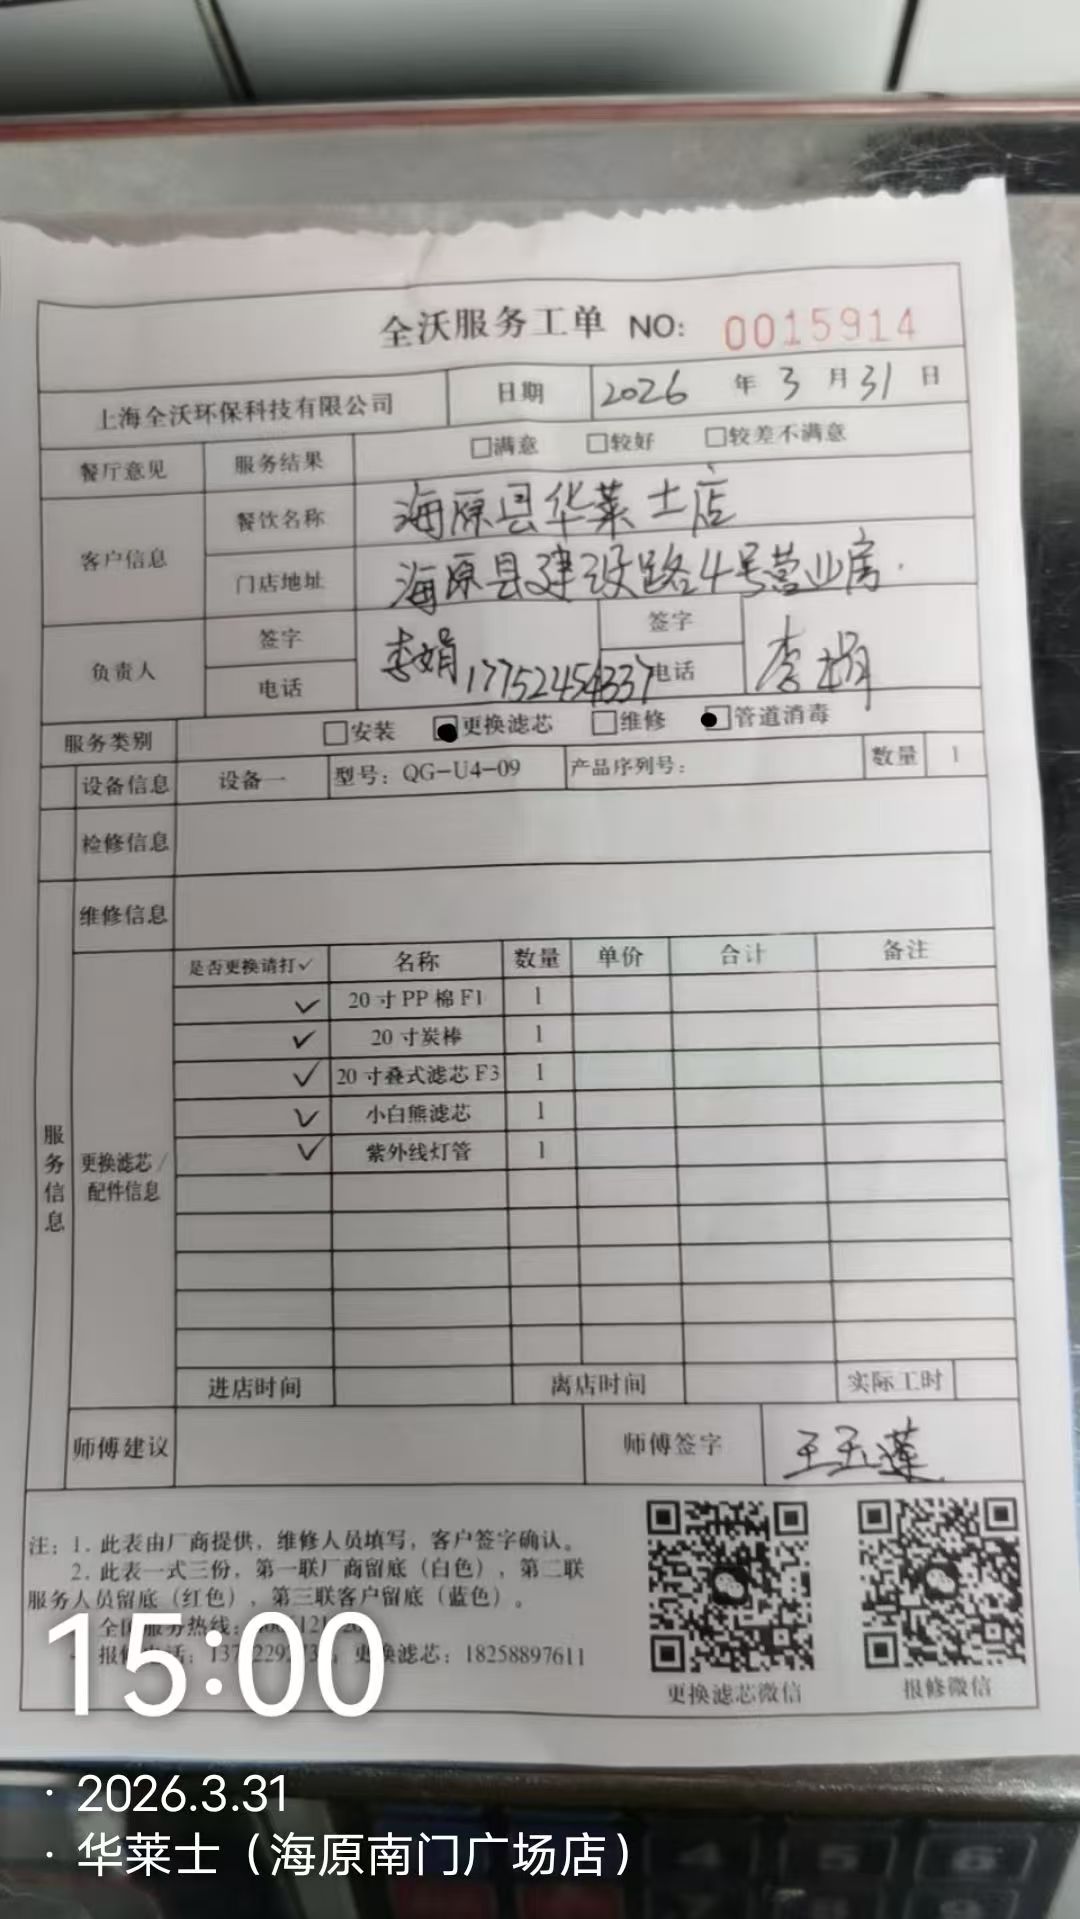 全沃服务工单 NO: 0015914
上海全沃环保科技有限公司 日期 2026 年 3 月 31 日
餐厅意见 服务结果 □满意 □较好 □较差不满意
客户信息 餐饮名称 海原县华莱士店
门店地址 海原县建设路4号营业房
负责人 签字 李娟 签字 李娟
电话 17752454337 电话
服务类别 □安装 □更换滤芯 □维修 □管道消毒
设备信息 设备一 型号: QG-U4-09 产品序列号: 数量 1
检修信息
维修信息
服务信息 更换滤芯/配件信息
是否更换请打✓ 名称 数量 单价 合计 备注
✓ 20寸PP棉F1 1
✓ 20寸炭棒 1
✓ 20寸叠式滤芯F3 1
✓ 小白熊滤芯 1
✓ 紫外线灯管 1
进店时间 离店时间 实际工时
师傅建议 师傅签字 王玉莲
注: 1. 此表由厂商提供, 维修人员填写, 客户签字确认。
2. 此表一式三份, 第一联厂商留底(白色), 第二联
服务人员留底(红色), 第三联客户留底(蓝色)。
全国服务热线:
报修电话: 更换滤芯: 18258897611
更换滤芯微信 报修微信
15:00
· 2026.3.31
· 华莱士（海原南门广场店）